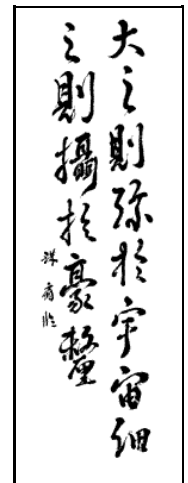 大之則弥於宇宙細
之則攝於豪釐